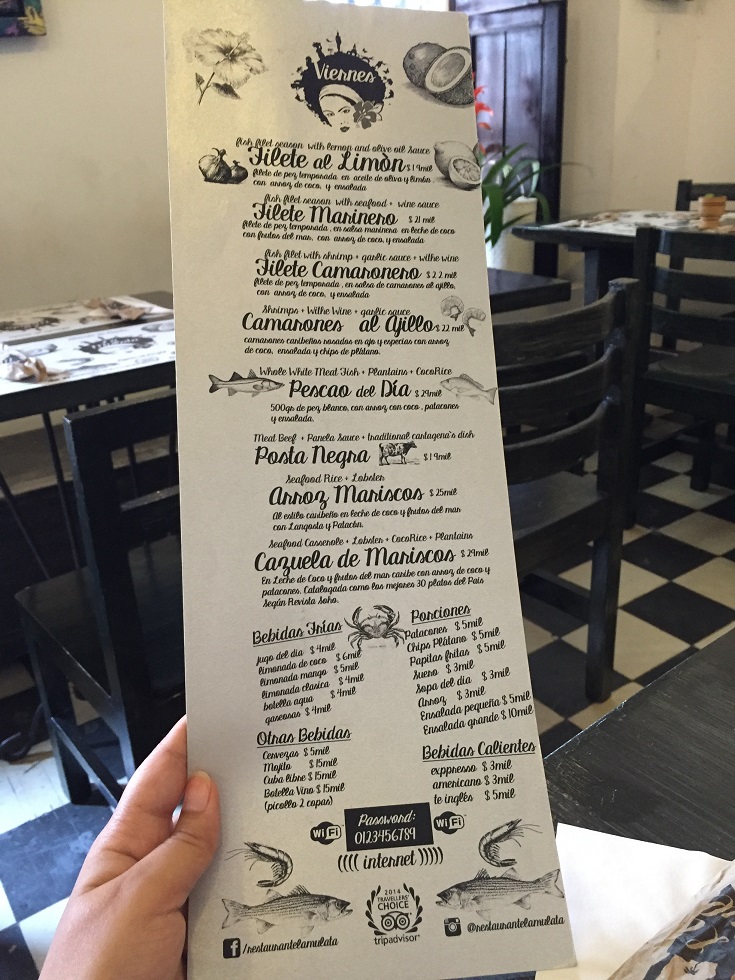 Viernes
fish filet season with lemon and olive oil Sauce
Filete al Limón $19mil
filete de pez temporada en aceite de oliva y limón
con arroz de coco, y ensalada
fish filet season with seafood + wine sauce
Filete Marinero $21 mil
filete de pez temporada, en salsa marinera en leche de coco
con frutos del mar, con arroz de coco, y ensalada
fish filet with shrimp + garlic sauce + withe wine
Filete Camaronero $22 mil
filete de pez temporada, en salsa de camarones al ajillo,
con arroz de coco, y ensalada
Shrimps + Withe Wine + garlic sauce
Camarones al Ajillo $22 mil
camarones caribeños rosados en ajo y especias con arroz
de coco, ensalada y chips de plátano.
Whole White Meat Fish + Plantains + CocoRice
Pescao del Día $29mil
500gs de pez blanco, con arroz con coco, patacones
y ensalada.
Meat Beef + Panela Sauce + traditional cartagena's dish
Posta Negra $19mil
Seafood Rice + Lobster
Arroz Mariscos $25mil
Al estilo caribeño en leche de coco y frutos del mar
con Langosta y Patacón.
Seafood Casserole + Lobster + CocoRice + Plantains
Cazuela de Mariscos $29mil
En Leche de Coco y frutos del mar caribe con arroz de coco y
patacones. Catalogada como los mejores 30 platos del País
Según Revista Soho.
Bebidas Frías
jugo del día $4mil
limonada de coco $6mil
limonada mango $5mil
limonada clasica $4mil
botella agua $4mil
gaseosas $4mil
Otras Bebidas
Cervezas $5mil
Mojito $15mil
Cuba libre $15mil
Botella Vino $15mil
(picollo 2 copas)
Porciones
Patacones $5mil
Chips Plátano $5mil
Papitas fritas $5mil
Suero $3mil
Sopa del dia $3mil
Arroz $3mil
Ensalada pequeña $5mil
Ensalada grande $10mil
Bebidas Calientes
exppresso $3mil
americano $3mil
te inglés $5mil
WiFi
Password:
0123456789
WiFi
(((( internet ))))
2014
TRAVELLERS'
CHOICE
tripadvisor
f/restaurantelamulata
@restaurantelamulata